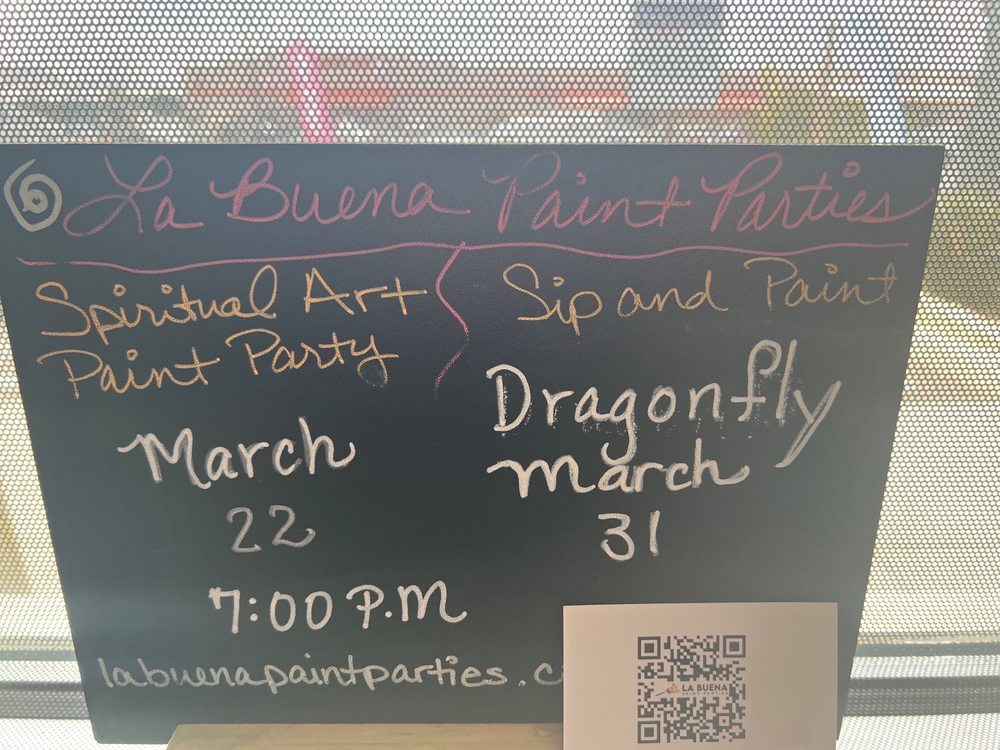 La Buena Paint Parties
Spiritual Art
Paint Party
March
22
7:00 P.M
Sip and Paint
Dragonfly
March
31
labuenapaintparties.c
LA BUENA
PAINT PARTIES